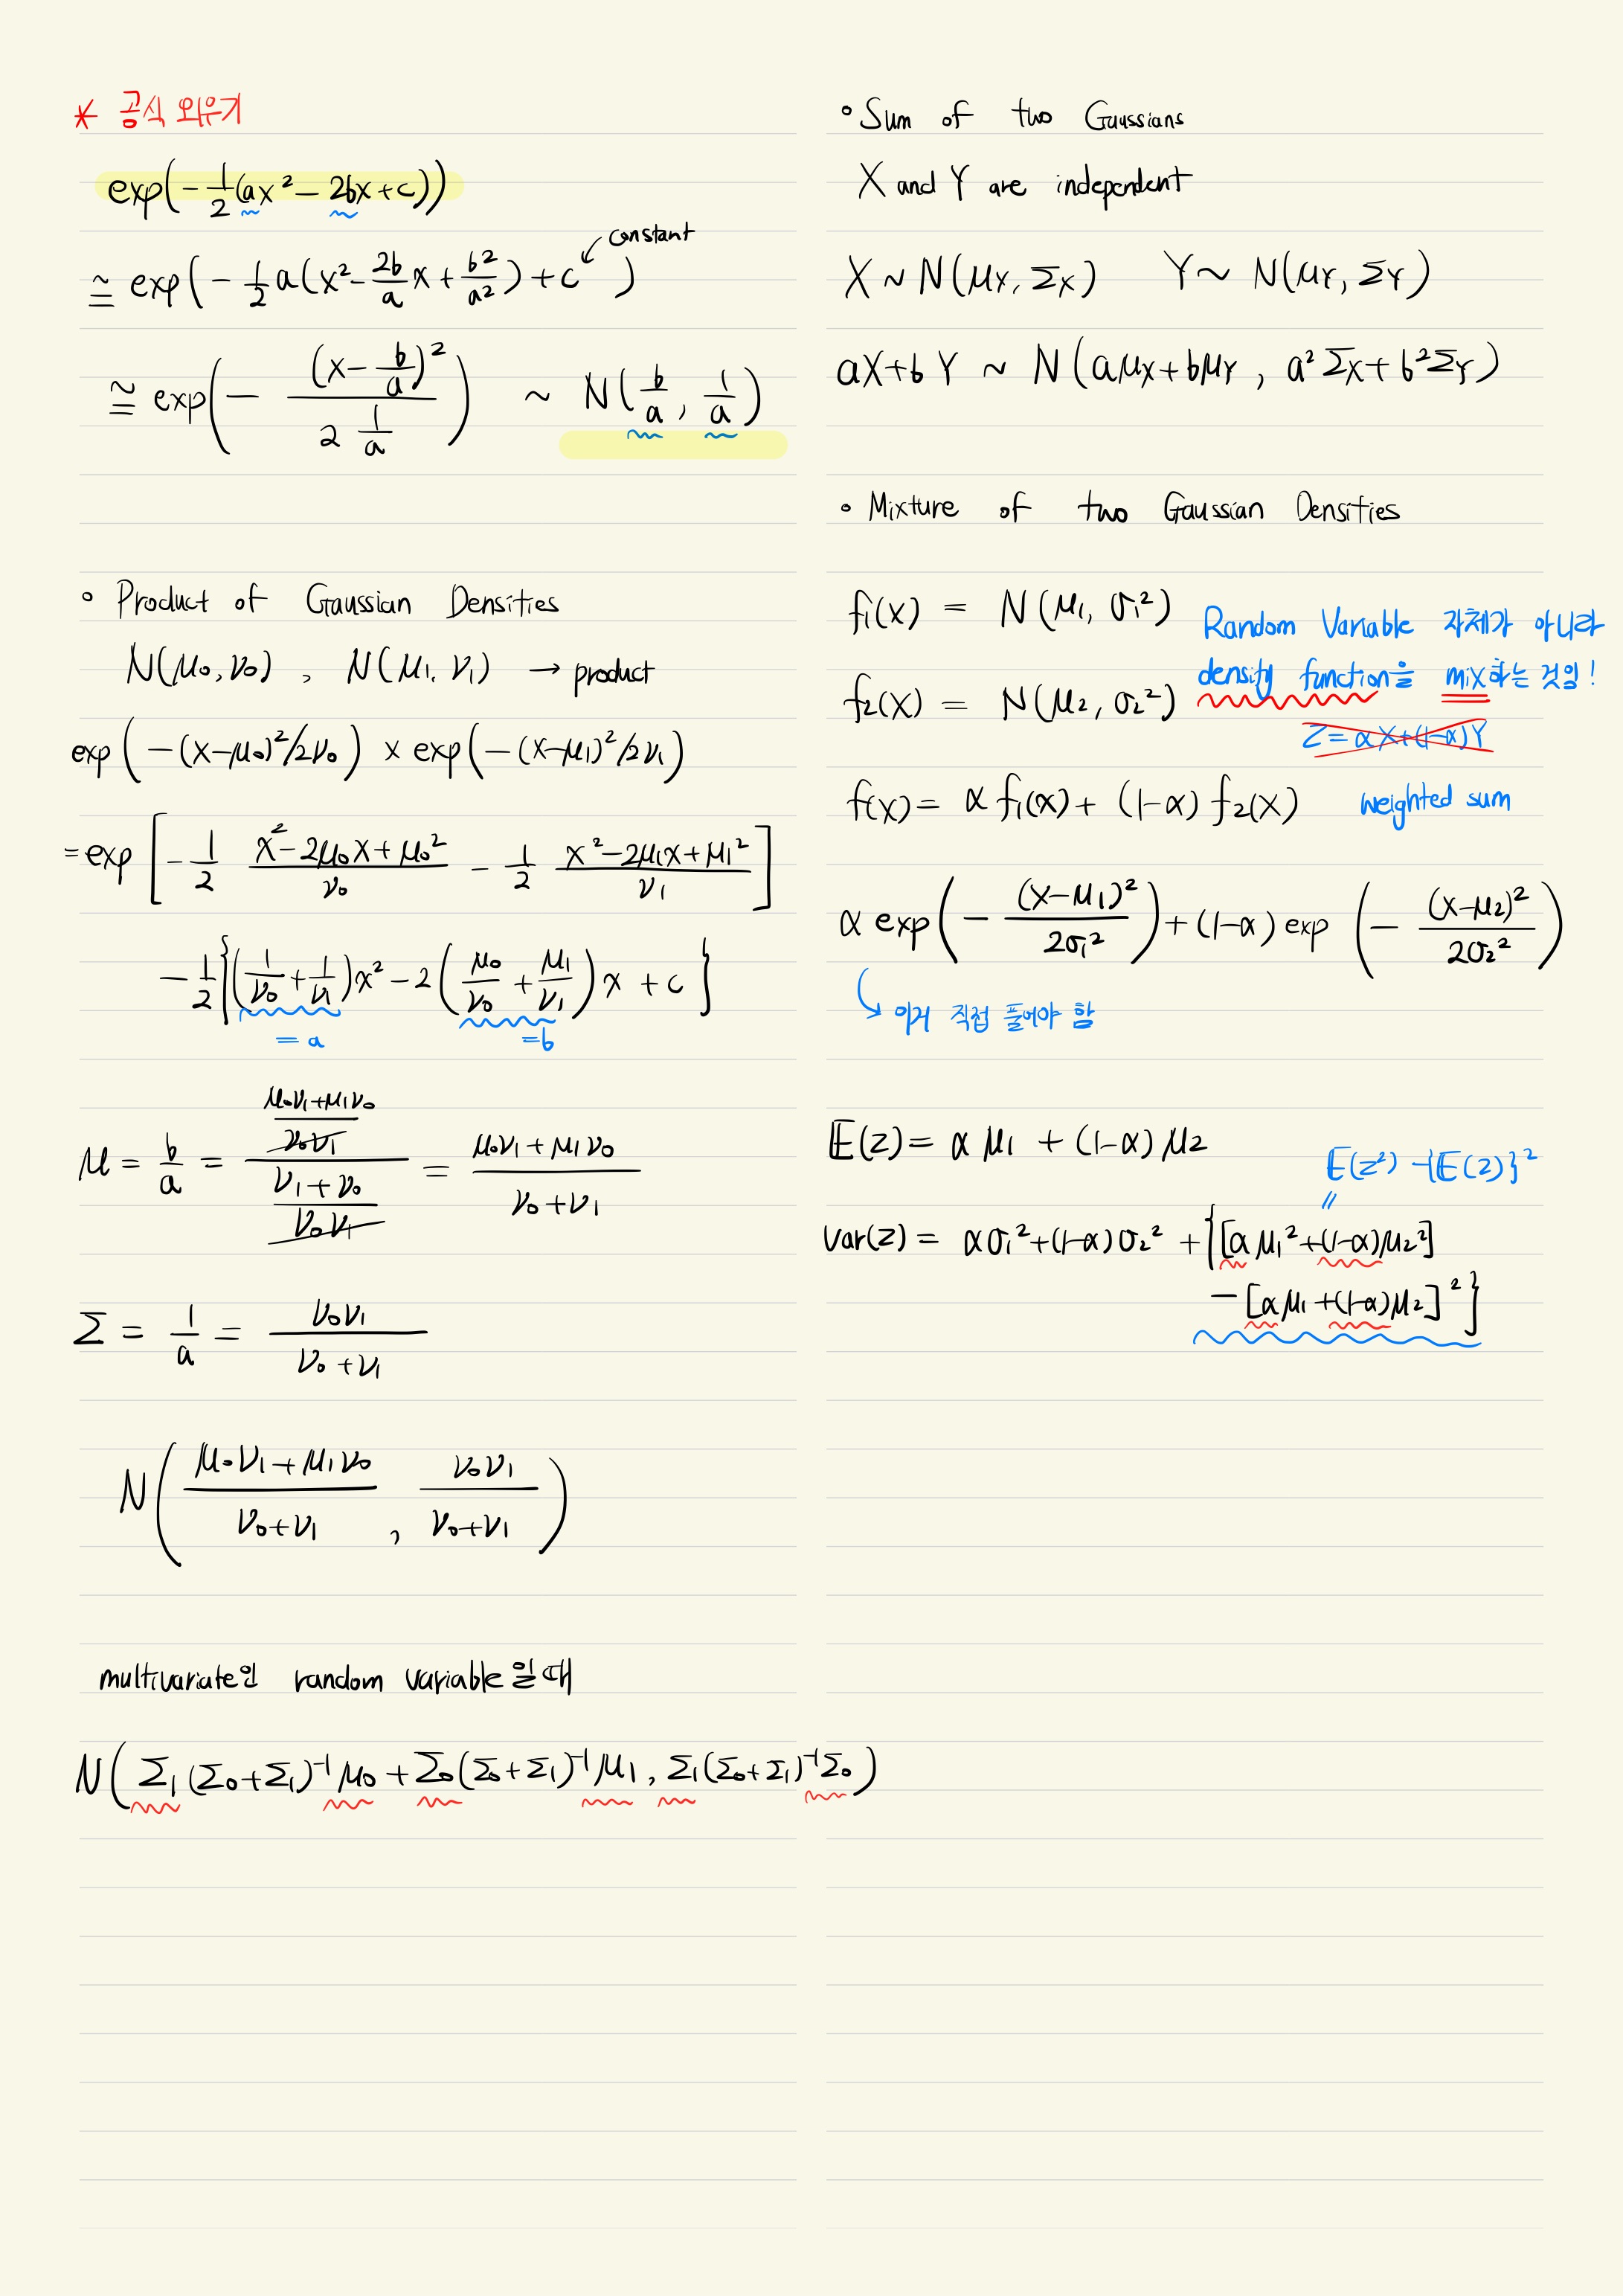 * 공식 외우기
exp(-1/2(ax² - 2bx + c))
≅ exp(-1/2 a(x² - 2b/a x + b²/a²) + c) ↙ constant
≅ exp(- (x - b/a)² / 2 1/a) ~ N(b/a, 1/a)
∘ Product of Gaussian Densities
N(μ₀, ν₀), N(μ₁, ν₁) → product
exp(-(x-μ₀)²/2ν₀) × exp(-(x-μ₁)²/2ν₁)
= exp[-1/2 (x² - 2μ₀x + μ₀²)/ν₀ - 1/2 (x² - 2μ₁x + μ₁²)/ν₁]
-1/2{(1/ν₀ + 1/ν₁)x² - 2(μ₀/ν₀ + μ₁/ν₁)x + c}
= a = b
μ = b/a = ((μ₀ν₁ + μ₁ν₀)/ν₀ν₁) / ((ν₁ + ν₀)/ν₀ν₁) = (μ₀ν₁ + μ₁ν₀)/(ν₀ + ν₁)
Σ = 1/a = ν₀ν₁/(ν₀ + ν₁)
N((μ₀ν₁ + μ₁ν₀)/(ν₀ + ν₁), ν₀ν₁/(ν₀ + ν₁))
multivariate인 random variable일때
N(Σ₁(Σ₀+Σ₁)⁻¹μ₀ + Σ₀(Σ₀+Σ₁)⁻¹μ₁, Σ₁(Σ₀+Σ₁)⁻¹Σ₀)
∘ Sum of two Gaussians
X and Y are independent
X ~ N(μx, Σx) Y ~ N(μY, ΣY)
aX + bY ~ N(aμx + bμY, a²Σx + b²ΣY)
∘ Mixture of two Gaussian Densities
f₁(x) = N(μ₁, σ₁²)
Random Variable 자체가 아니라
density function을 mix하는 것임!
f₂(x) = N(μ₂, σ₂²)
Z = αX + (1-α)Y
f(x) = αf₁(x) + (1-α)f₂(x) weighted sum
α exp(-(x-μ₁)²/2σ₁²) + (1-α) exp(-(x-μ₂)²/2σ₂²)
↳ 이거 직접 풀어야 함
E(z) = αμ₁ + (1-α)μ₂
E(z²) - {E(z)}²
〃
Var(z) = ασ₁² + (1-α)σ₂² + {[αμ₁² + (1-α)μ₂²]
- [αμ₁ + (1-α)μ₂]²}